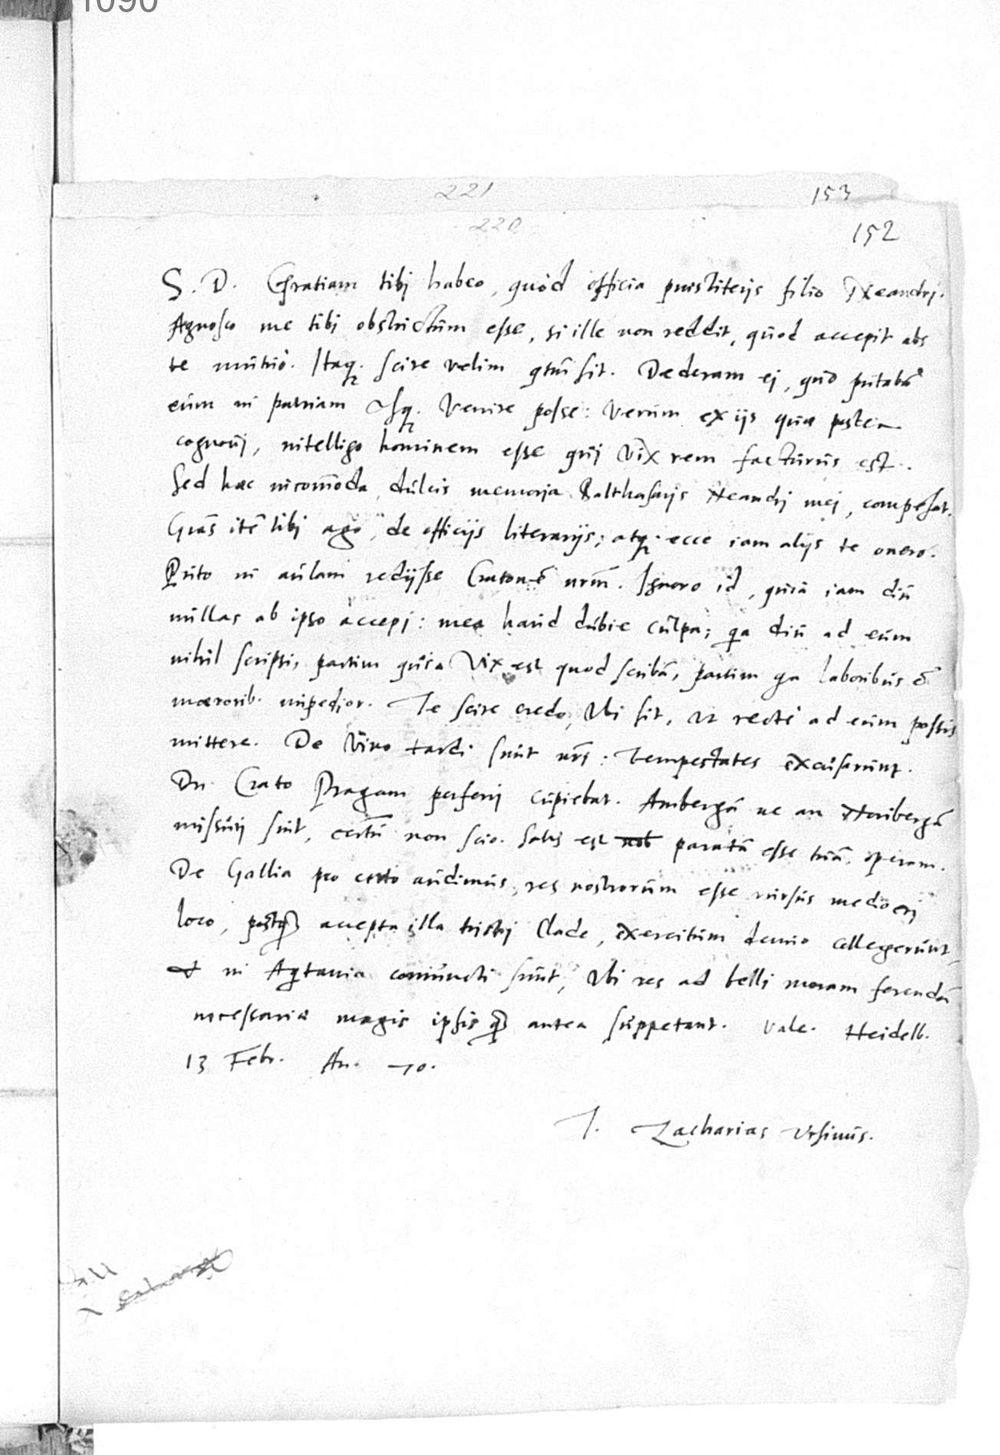 1090
221
153
220
152
S. D. Gratiam tibj habeo, quòd officia praestiterjs filio Neandrj.
Agnosco me tibj obstrictum esse, si ille non reddit, quod accepit abs
te mutuò. Itaq. scire velim qtũ sit. Dederam ej, quo putabã
eum in patriam usq. venire posse: verum ex ijs quae postea
cognovj, intelligo hominem esse quj vix rem facturus est.
Sed haec incom̃oda dulcis memoria Balthasarjs Neandrj mej, compẽsat.
Grãs itẽ tibj ago, de officijs literarijs; atq. ecce iam alijs te onero.
Puto in aulam redijsse Cratonẽ nrm̃. Ignoro id, quia iam diu
nullas ab ipso accepj: mea haud dubie culpa; qa diu ad eum
nihil scripsi, partim quia vix est quod scribã, partim qa laboribus &
maerorib. impedior. Te scire credo, ubi sit, ut rectè ad eum possis
mittere. De vino tardi sunt nrj: Tempestates excusarunt.
Dn. Crato Pragam perferrj cupiebat. Ambergã ne an Noribergã
missuri sint, certũ non scio. Satis est paratã esse tuã operam.
De Gallia pro certo audimus, res nostrorum esse rursus mediocrj
loco, postq accepta illa tristj clade, exercitum denuo collegerunt,
& in Aqtania coniuncti sunt, ubi res ad belli moram ferendã
necessariae magis ipsis q antea suppetant. Vale. Heidelb.
13 Febr. An. 70.
T. Zacharias Ursinus.